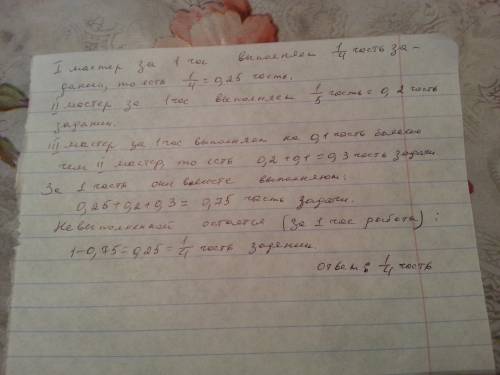 I мастер за 1 час выполняет 1/4 часть за-
дания, то есть 1/4 = 0,25 часть.
II мастер за 1 час выполняет 1/5 часть = 0,2 часть
задании.
III мастер за 1 час выполняет на 0,1 часть больше
чем II мастер, то есть 0,2+0,1=0,3 часть задачи.
За 1 часть они вместе выполняют:
0,25+0,2+0,3 = 0,75 часть задачи.
Невыполненной остаётся (за 1 час работы):
1-0,75=0,25=1/4 часть задании.
ответ: 1/4 часть